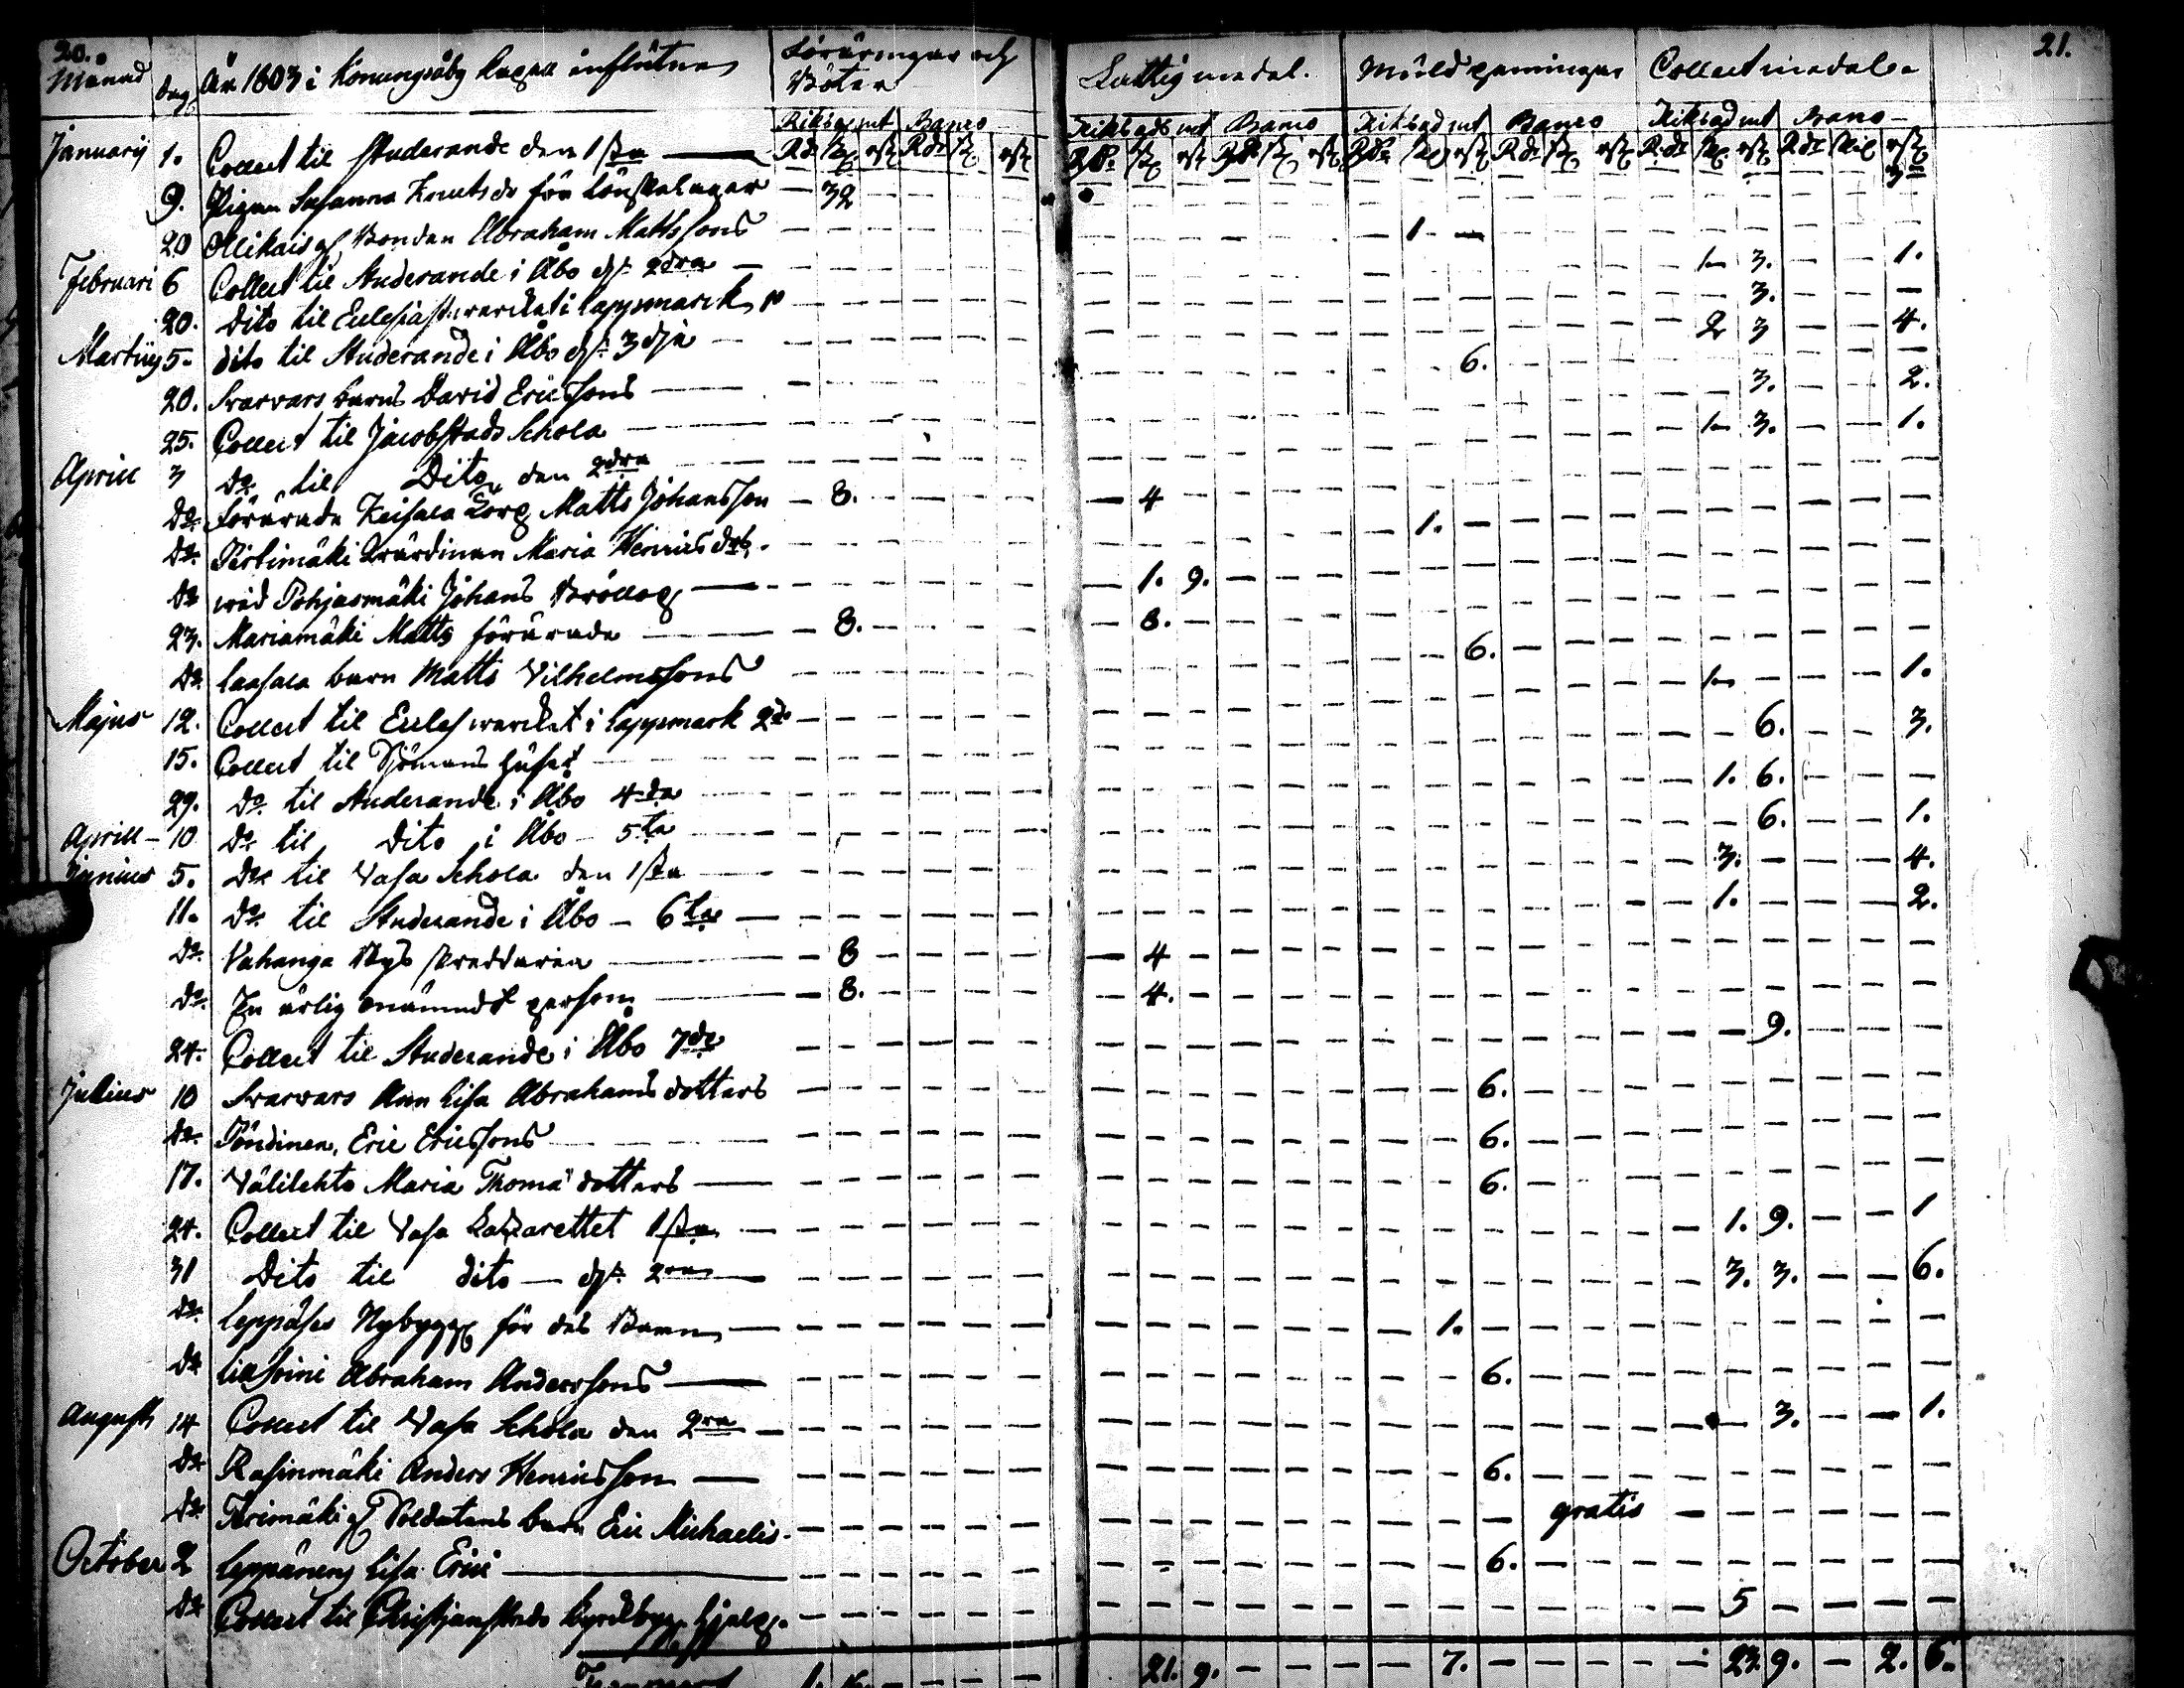 20. 21.
Månad dag År 1803 i Konungsåby Capell influtne Föräringar och Böter Fattig medel. Mull penningar Collect medel.
Riksg mt Banco Riksgds mt Banco Riksgd mt Banco Riksgd mt Banco
Januarij 1. Collect til Studerande den 1sta — 3
9. Pigan Susanna Knuts dr för Lönskeläger — 32
20 Ollikais Bonden Abraham Mattssons — 1. —
Februari 6 Collect til Studerande i Åbo dr 2dra — 1. 3. — — 1.
20. Dito til Ecclesiast. wercket i Lappmarck — 3. — — —
Martius 5. dito til Studerande i Åbo dr 3dje — 2 3 — — 4.
20. Swarvars barns David Ericssons — 6.
25. Collect til Jacobstads Schola — 3. — — 2.
Aprill 3 Do til Dito den 2dra — 1. 3. — — 1.
Do förärade Keisala Matts Johansson — 8. — 4
Do Pirtimäki Wärdinnan Maria Henrics dr — 1.
Do wid Pohjasmäki Johans Bröllop — 1. 9.
23. Mariamäki Matts förärade — 8. — 8.
Do Laasala barn Matts Vilhelmssons — 6.
Majus 12. Collect til Eccles wercket i Lappmark 2dr — 1. — — — 1.
15. Collect til Sjömans Huset — 6. — — 3.
29. Do til Studerande i Åbo 4de — 1. 6. — — —
Aprill 10 Do til Dito i Åbo 5te — 6. — — 1.
Junius 5. Do til Vasa Schola den 1sta — 3. — — — 4.
11. Do til Studerande i Åbo — 6te — 1. — — — 2.
Do Vahanga Bys — 8 — 4
Do En ärlig onämnd person — 8. — 4.
24. Collect til Studerande i Åbo 7de — 9.
Julius 10 Swarvars Ann Lisa Abrahams dotters — 6.
Do Pöndinen, Eric Ericssons — 6.
17. Välilehto Maria Thomæ dotters — 6.
24. Collect til Vasa Lazarettet 1sta — 1. 9. — — 1
31 Dito til dito — dr 2ra — 3. 3. — — 6.
Do Leppäses Nybygg för des Barn — 1.
Do Lillsoini Abraham Anderssons — 6.
Augusti 14 Collect til Vasa Schola den 2ra — 3. — — 1.
Do Rasinmäki Anders Henricsson — 6.
Do Soldatens barn Eric Michaelis — gratis —
October 2 Leppänens Lisa Erici — 6.
Do Collect til Christjanstads Kyrckbygg. hjelp. — 5
21. 9. — 7. — 23 9. — 2. 6.